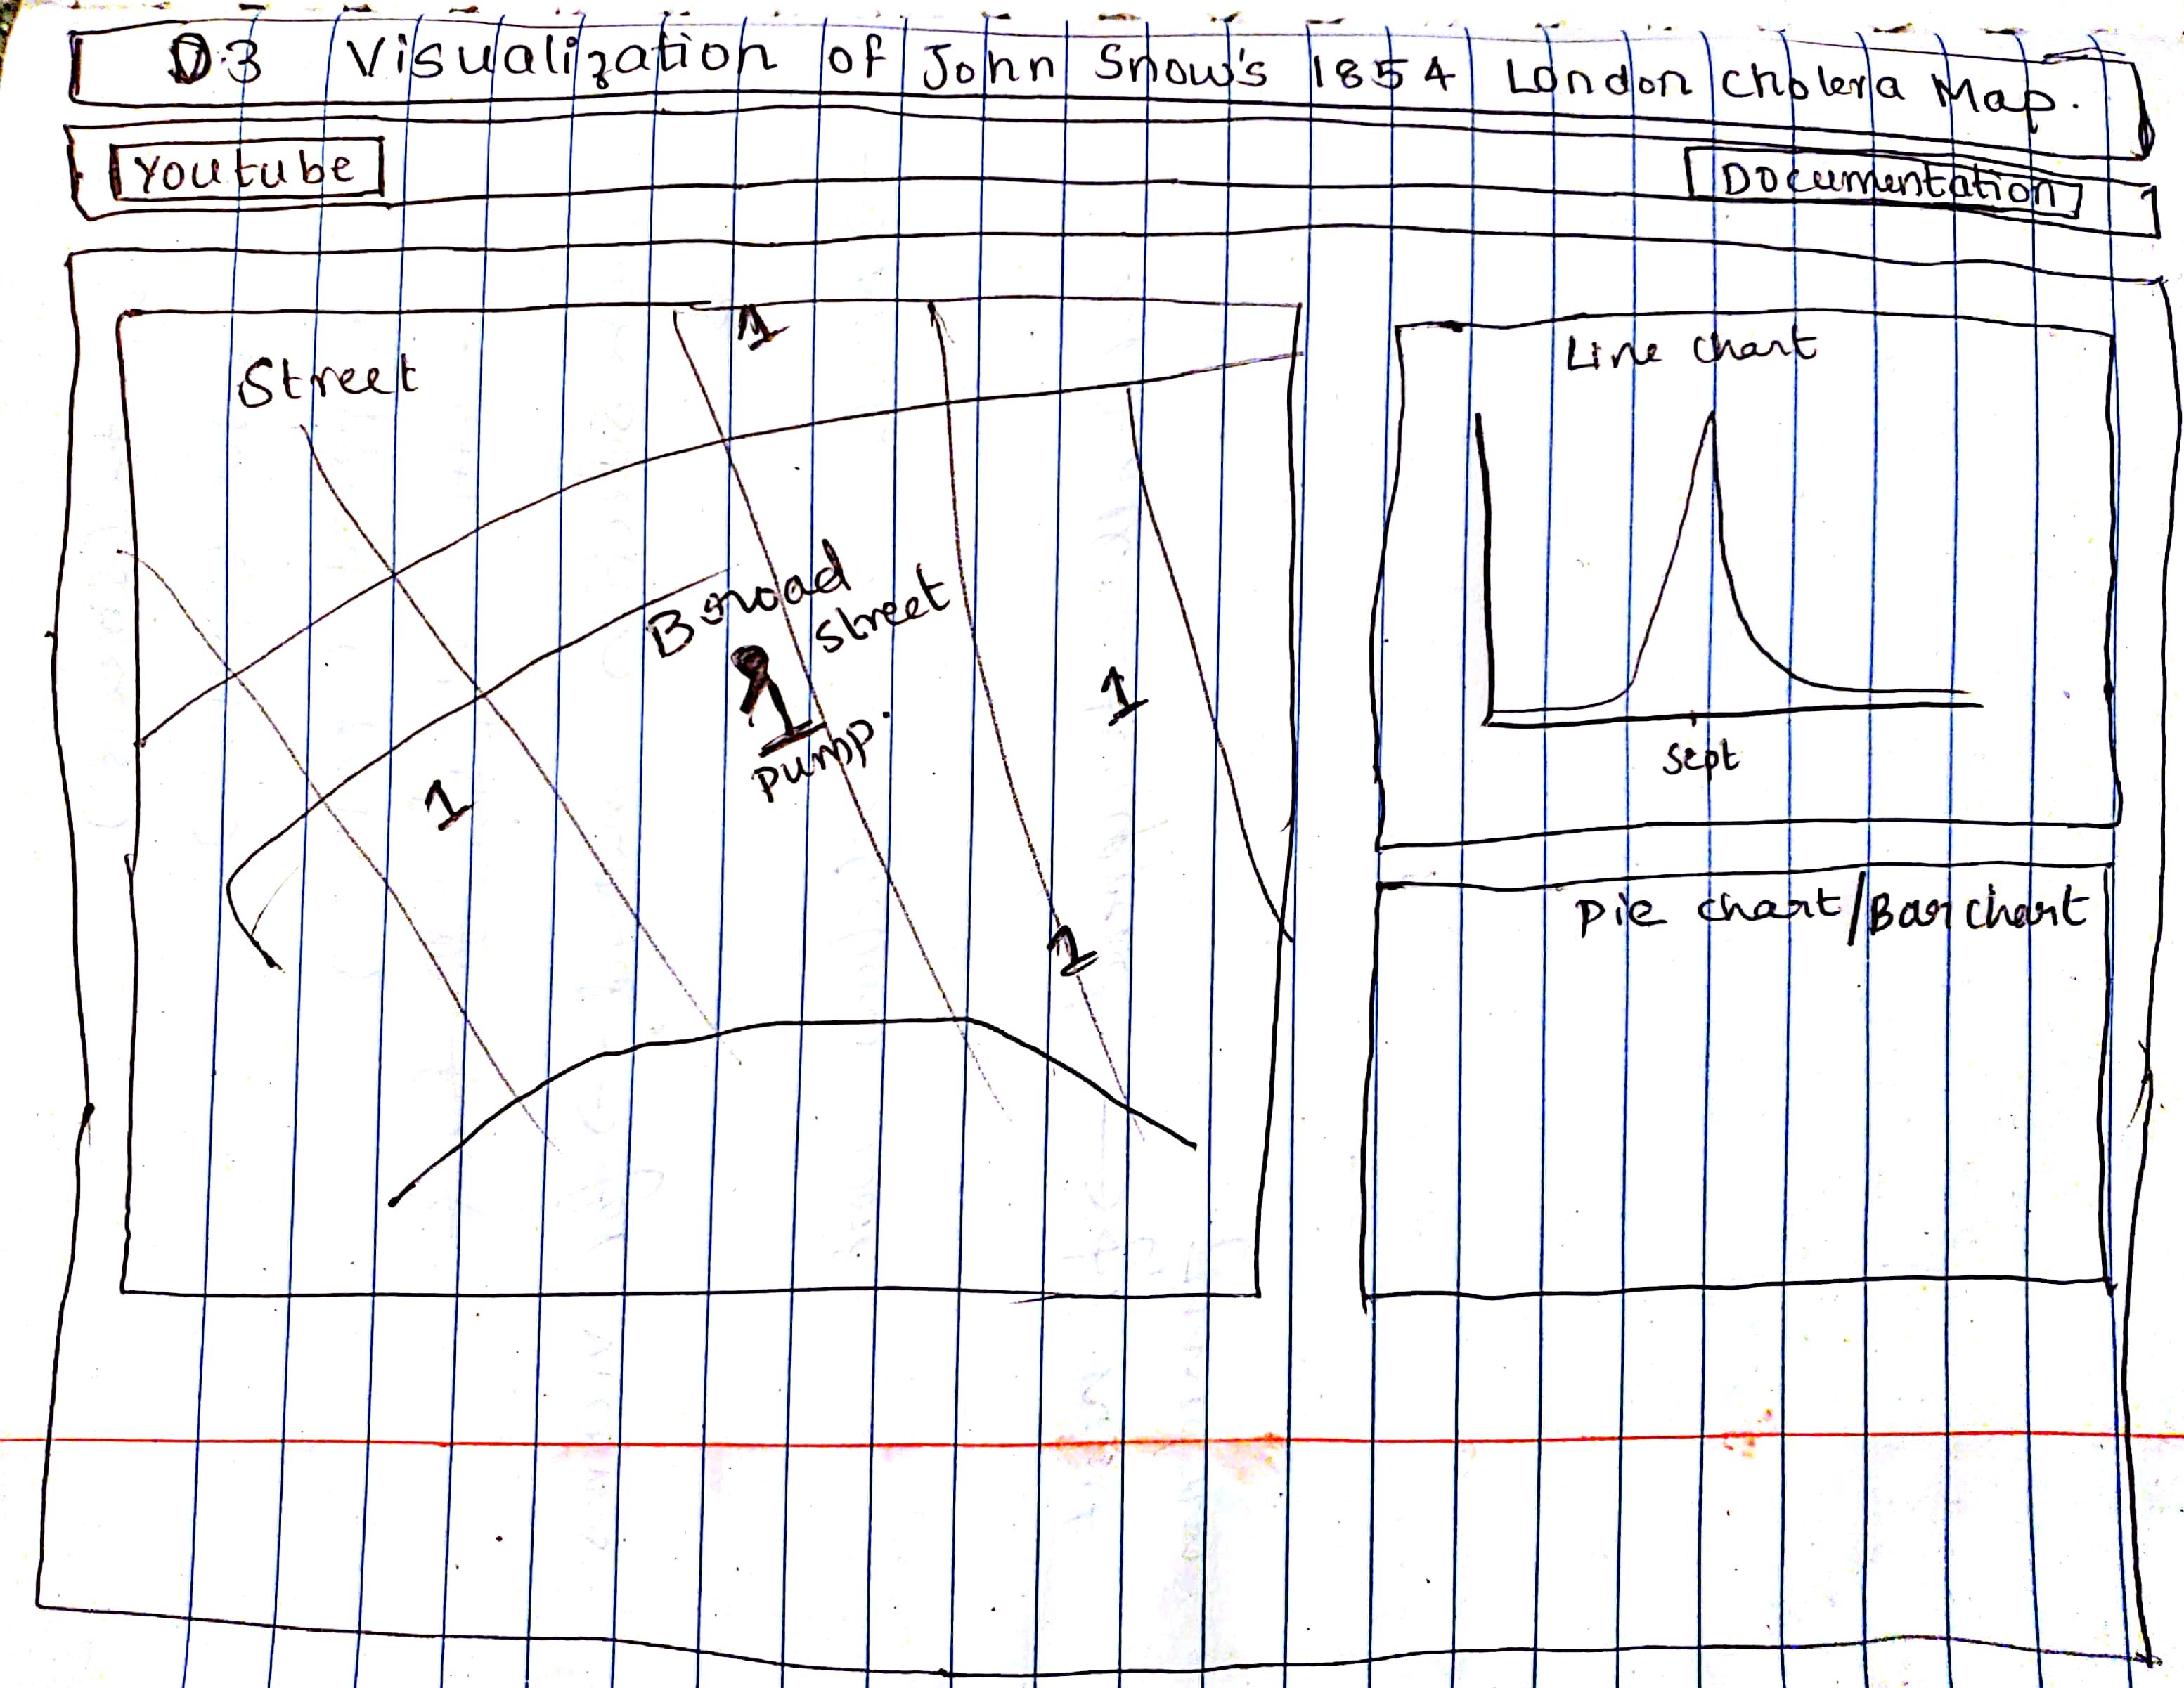 D3 Visualization of John Snow's 1854 London Cholera Map.
Youtube
Documentation
Street
1
Broad
Street
1
Pump.
1
1
1
Line chart
Sept
Pie chart/Bar chart